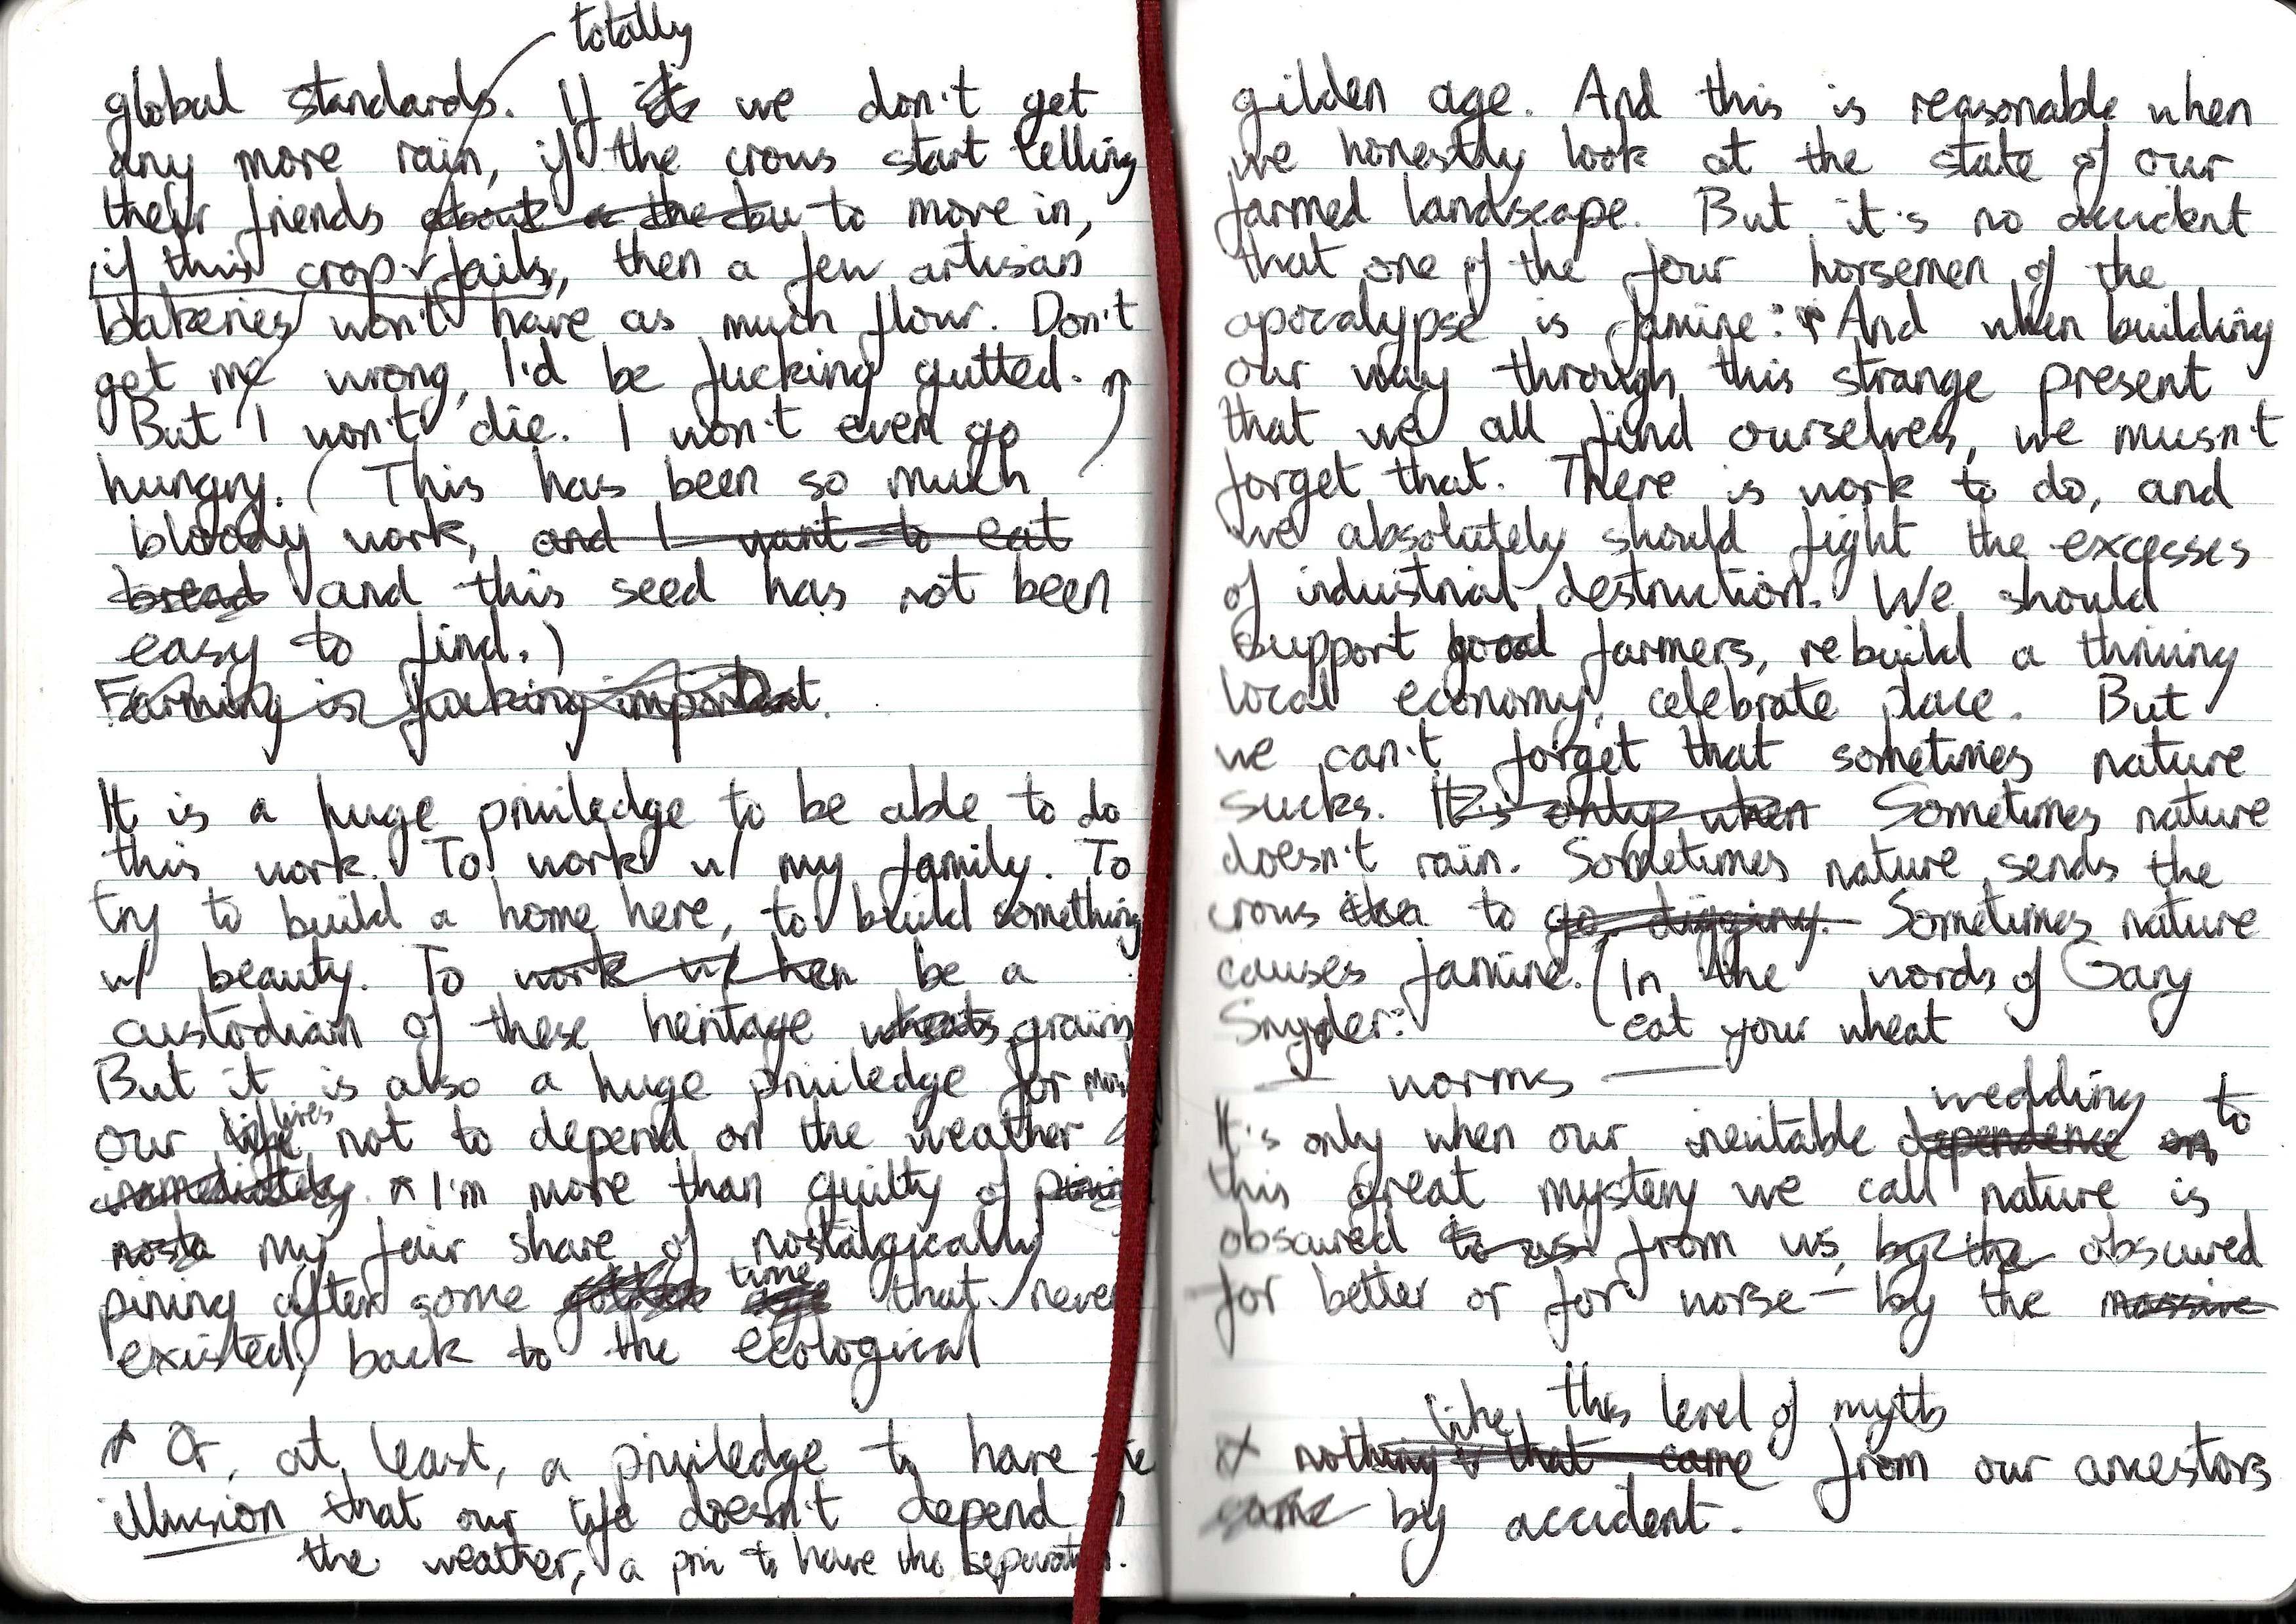 totally
global standards. If its we don't get
any more rain, if the crows start telling
their friends about a the bu to move in,
if this crop fails, then a few artisan
bakeries won't have as much flour. Don't
get me wrong, I'd be fucking gutted.
But I won't die. I won't even go
hungry. (This has been so much
bloody work, and I want to eat
bread and this seed has not been
easy to find.)
Farming is fucking important.
It is a huge priviledge to be able to do
this work. To work w/ my family. To
try to build a home here, to build something
w/ beauty. To work w/ hen be a
custodian of these heritage wheats grains
But it is also a huge priviledge for
our life lives not to depend on the weather
immediately. * I'm more than guilty of pining
nosta my fair share of nostalgically
pining after some golden age time that never
existed, back to the ecological
* Or, at least, a priviledge to have
illusion that our life doesn't depend
the weather, a priv to have the separation.
gilden age. And this is reasonable when
we honestly look at the state of our
farmed landscape. But it's no accident
that one of the four horsemen of the
apocalypse is famine: * And when building
our way through this strange present
that we all find ourselves, we musn't
forget that. There is work to do, and
we absolutely should fight the excesses
of industrial destruction. We should
support good farmers, rebuild a thriving
local economy, celebrate place. But
we can't forget that sometimes nature
sucks. It's only when Sometimes nature
doesn't rain. Sometimes nature sends the
crows to go digging. Sometimes nature
causes famine. (In the words of Gary
Snyder: eat your wheat
worms
wedding to
It's only when our inevitable dependence on
this great mystery we call nature is
obscured to us from us, by the obscured
for better or for worse — by the massive
like this level of myth
* nothing that came from our ancestors
came by accident.